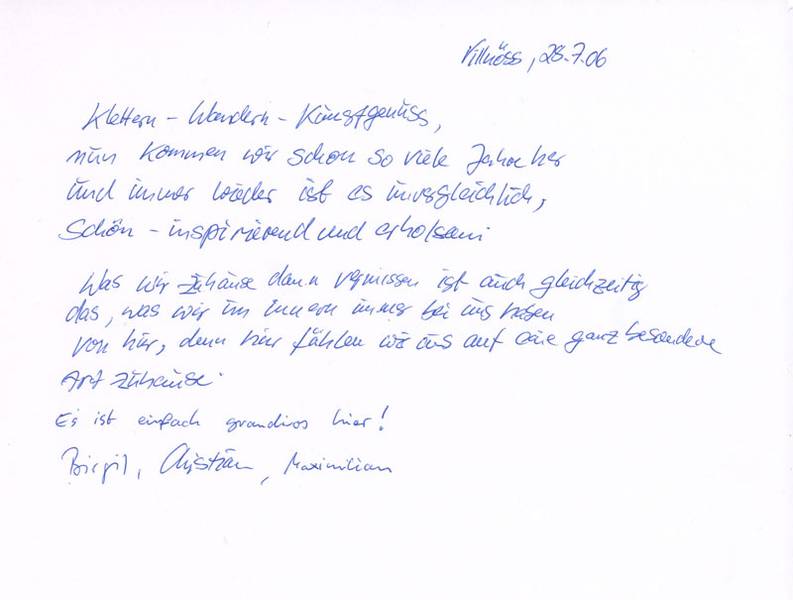 Villnöss, 28.7.06
Klettern - Wandern - Kunstgenuss,
nun kommen wir schon so viele Jahre her
und immer wieder ist es unvergleichlich,
schön - inspirierend und erholsam.
Was wir zuhause dann vermissen ist auch gleichzeitig
das, was wir im Innern immer bei uns haben
von hier, denn hier fühlen wir uns auf eine ganz besondere
Art zuhause.
Es ist einfach grandios hier!
Birgit, Christian, Maximilian